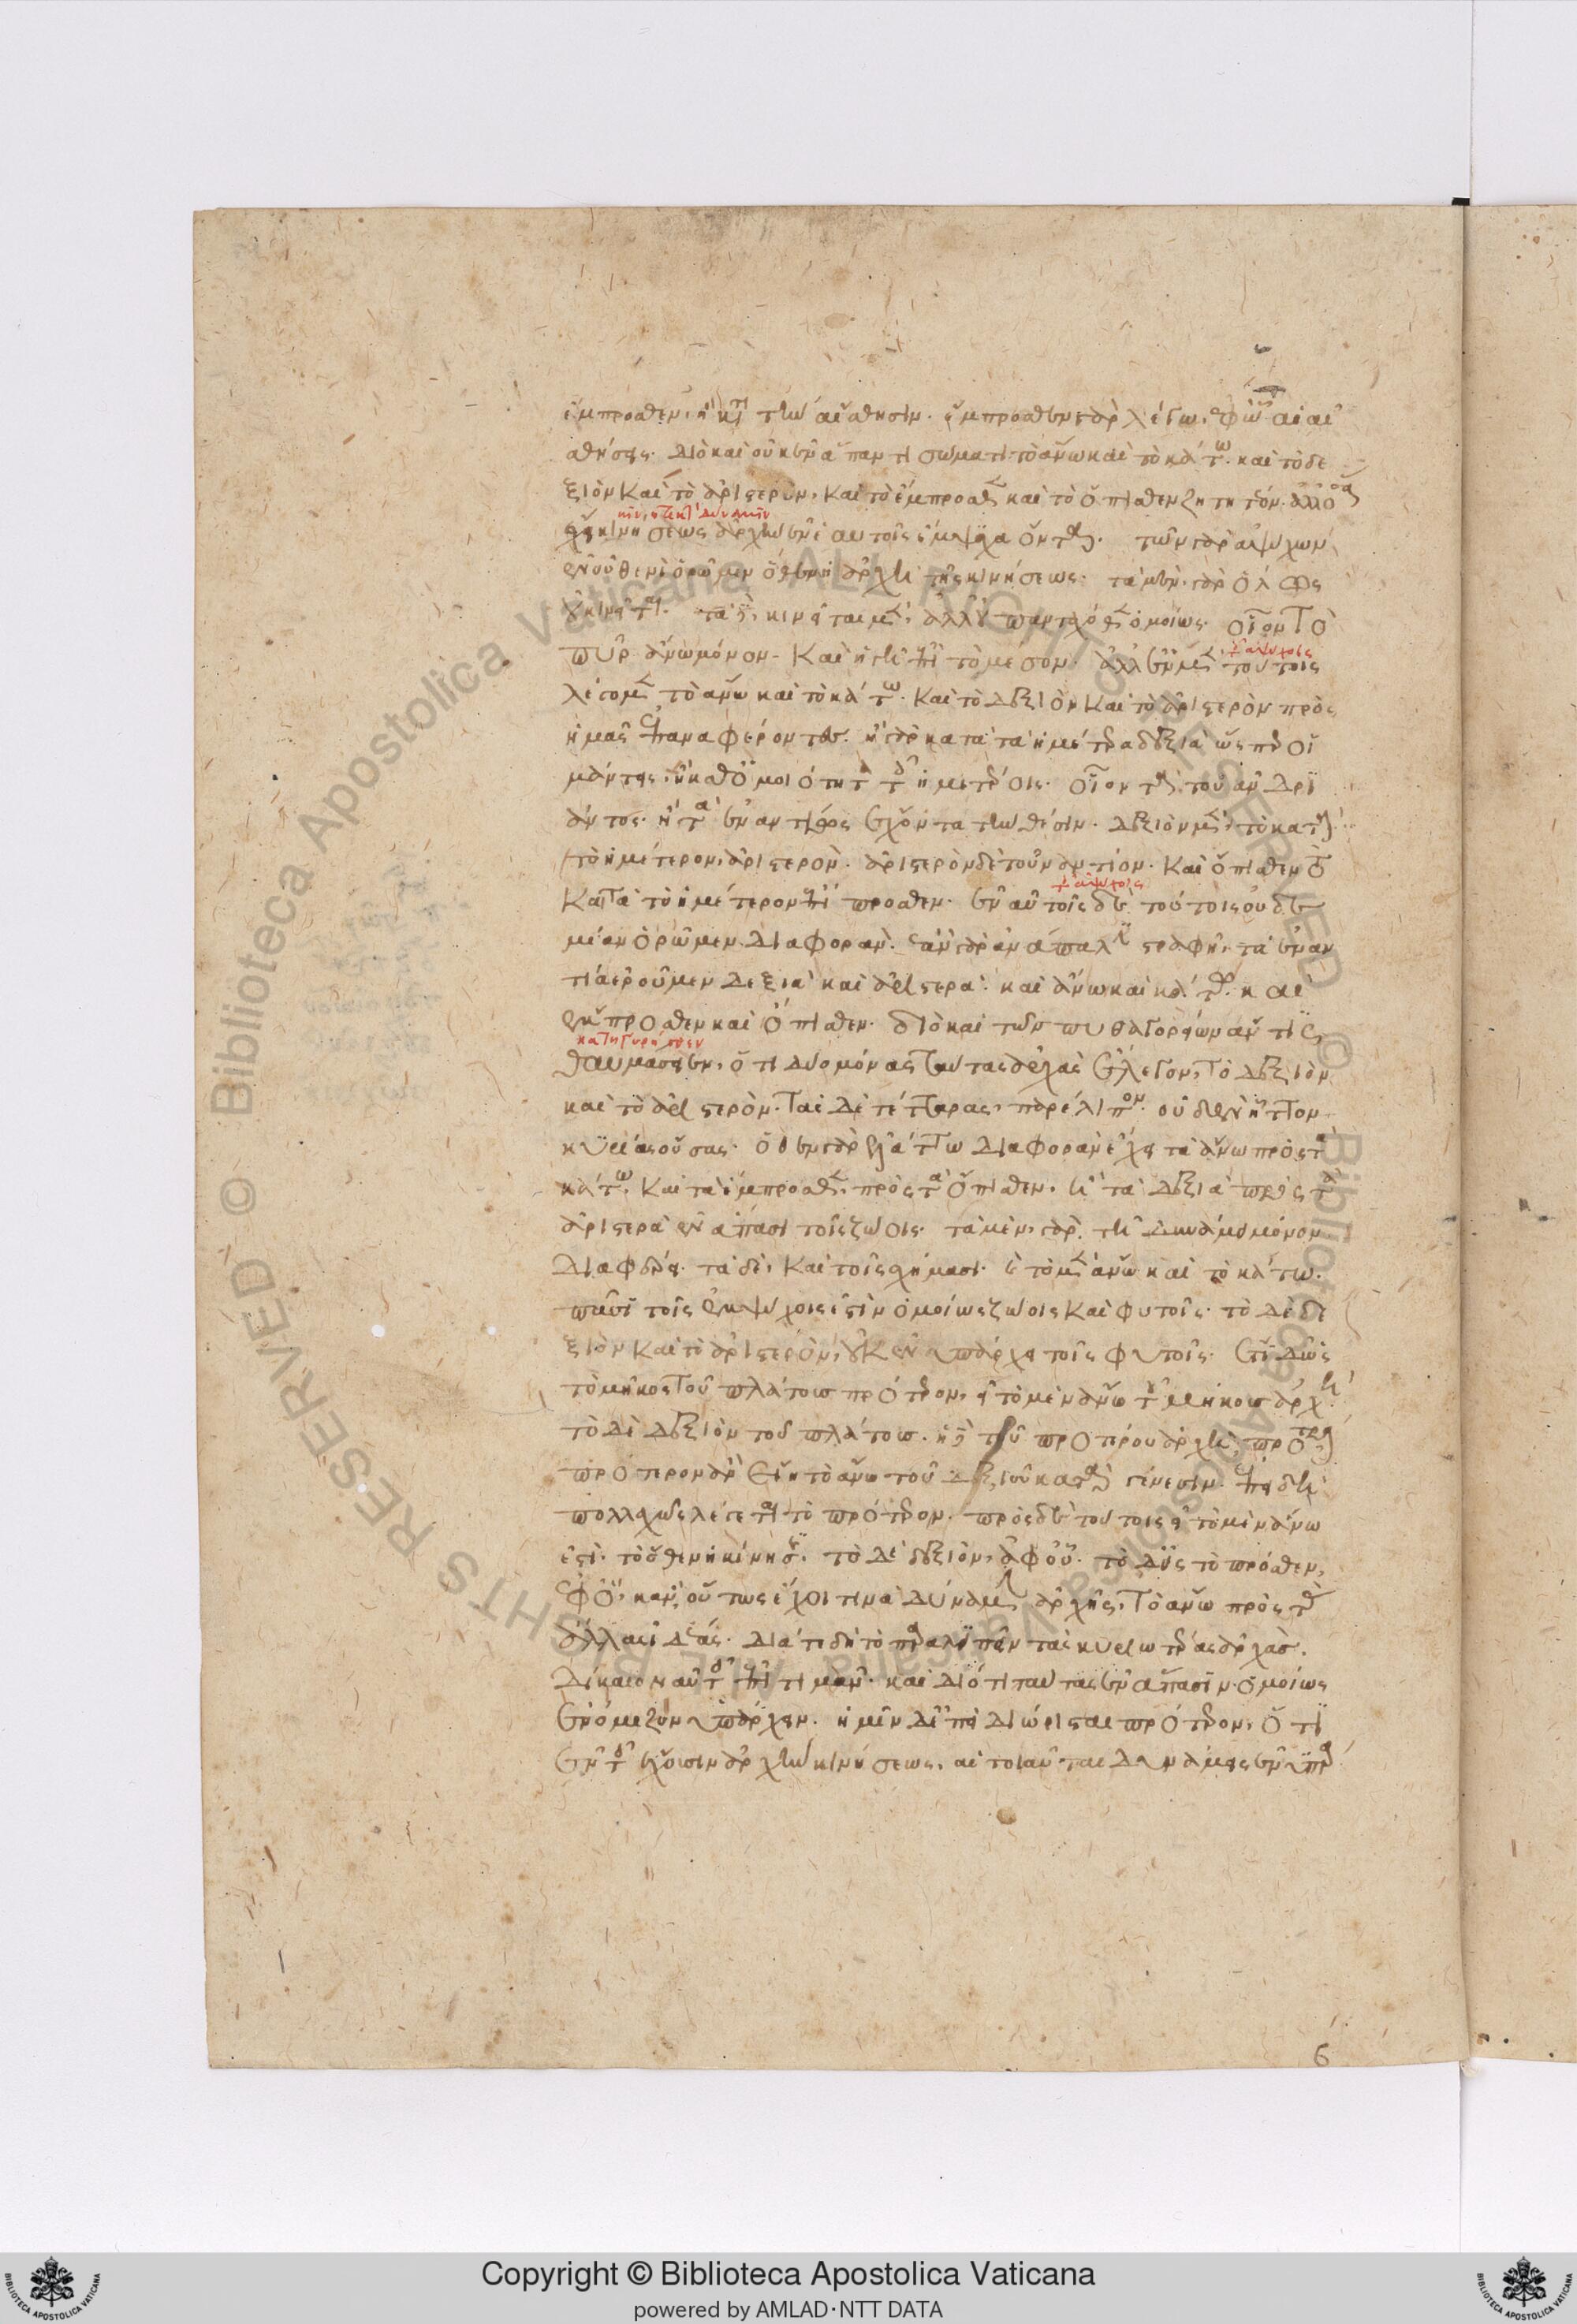 ἔμπροσθεν, ἡ κατὰ τὴν αἴσθησιν. ἔμπροσθεν γὰρ λέγω, ἐφ' ὧν αἱ αἰ
σθήσεις. διὸ καὶ οὐκ ἐν ἅπαντι σώματι τὸ ἄνω καὶ τὸ κάτω. καὶ τὸ δε
ξιὸν καὶ τὸ ἀριστερὸν, καὶ τὸ ἔμπροσθεν καὶ τὸ ὄπισθεν ζητητέον. ἀλλ' ὅσα
ἔχει κινήσεως ἀρχὴν ἐν ἑαυτοῖς ἔμψυχα ὄντα. τῶν γὰρ ἀψύχων
ἐν οὐθενὶ ὁρῶμεν ὅθεν ἡ ἀρχὴ τῆς κινήσεως. τὰ μὲν γὰρ ὅλως
οὐ κινεῖται. τὰ δὲ, κινεῖται μὲν, ἀλλ' οὐ πανταχόθεν ὁμοίως. οἷον τὸ
πῦρ ἄνω μόνον. καὶ ἡ γῆ ἐπὶ τὸ μέσον. ἀλλ' ἐν μὲν τούτοις
τοῖς ἀψύχοις
λέγομεν τὸ ἄνω καὶ τὸ κάτω. καὶ τὸ δεξιὸν καὶ τὸ ἀριστερὸν πρὸς
ἡμᾶς ἐπαναφέροντες. ἢ γὰρ κατὰ τὰ ἡμέτερα δεξιὰ ὥσπερ οἱ
μάντεις, ἢ καθ' ὁμοιότητα τοῖς ἡμετέροις. οἷον τὰ τοῦ ἀνδρι
άντος. ἢ τὰ ἐναντίως ἔχοντα τὴν θέσιν. δεξιὸν μὲν, τὸ κατὰ
τὸ ἡμέτερον, ἀριστερὸν. ἀριστερὸν δὲ τοὐναντίον. καὶ ὄπισθεν τὸ
κατὰ τὸ ἡμέτερον ἔμπροσθεν. ἐν αὐτοῖς δὲ τούτοις οὐδε
τοῖς ἀψύχοις
μίαν ὁρῶμεν διαφοράν. ἐὰν γὰρ ἀνάπαλιν στραφῇ, τὰ ἐναν
τία ἐροῦμεν δεξιὰ καὶ ἀριστερά. καὶ ἄνω καὶ κάτω. καὶ
ἔμπροσθεν καὶ ὄπισθεν. διὸ καὶ τῶν πυθαγορείων ἄν τις
θαυμάσειεν, ὅτι δύο μόνας ταύτας ἀρχὰς ἔλεγον, τὸ δεξιὸν
καὶ τὸ ἀριστερὸν. τὰς δὲ τέτταρας, παρέλιπον. οὐδὲν ἧττον
κυρίας οὔσας. οὐθὲν γὰρ ἐλάττω διαφορὰν ἔχει τὰ ἄνω πρὸς τὰ
κάτω, καὶ τὰ ἔμπροσθεν πρὸς τὰ ὄπισθεν, ἢ τὰ δεξιὰ πρὸς τὰ
ἀριστερὰ ἐν ἅπασι τοῖς ζώοις. τὰ μὲν, γὰρ τῇ δυνάμει μόνον
διαφέρει. τὰ δὲ, καὶ τοῖς σχήμασι. καὶ τὸ μὲν ἄνω καὶ τὸ κάτω.
πᾶσι τοῖς ἐμψύχοις ἐστὶν ὁμοίως ζώοις καὶ φυτοῖς. τὸ δὲ δε
ξιὸν καὶ τὸ ἀριστερὸν, οὐκ ἐνυπάρχει τοῖς φυτοῖς. ἔτι δ' ὡς
τὸ μῆκος τοῦ πλάτους πρότερον, εἰ τὸ μὲν ἄνω τοῦ μήκους ἀρχὴ.
τὸ δὲ δεξιὸν τοῦ πλάτους. ἡ δὲ τοῦ προτέρου ἀρχὴ, προτέρα
πρότερον ἂν εἴη τὸ ἄνω τοῦ δεξιοῦ κατὰ γένεσιν. ἐπειδὴ
πολλαχῶς λέγεται τὸ πρότερον. πρὸς δὲ τούτοις εἰ τὸ μὲν ἄνω
ἐστὶ. τὸ ὅθεν ἡ κίνησις. τὸ δὲ δεξιὸν, ἀφ' οὗ. τὸ δ' εἰς τὸ πρόσθεν,
ἐφ' ὃ, καὶ οὕτως ἔχοι τινὰ δύναμιν ἀρχῆς, τὸ ἄνω πρὸς τὰς
ἄλλας ἰδέας. διά τε δὴ τὸ παραλιπεῖν τὰς κυριωτέρας ἀρχὰς.
δίκαιον αὐτοῖς ἐπιτιμᾶν. καὶ διότι ταύτας ἐν ἅπασιν ὁμοίως
ἐνόμιζον ὑπάρχειν. ἡμῖν δ' ἐπεὶ διώρισται πρότερον, ὅτι
ἐν τοῖς ἔχουσιν ἀρχὴν κινήσεως, αἱ τοιαῦται δυνάμεις ἐνυπάρ
6
Copyright © Biblioteca Apostolica Vaticana
powered by AMLAD·NTT DATA